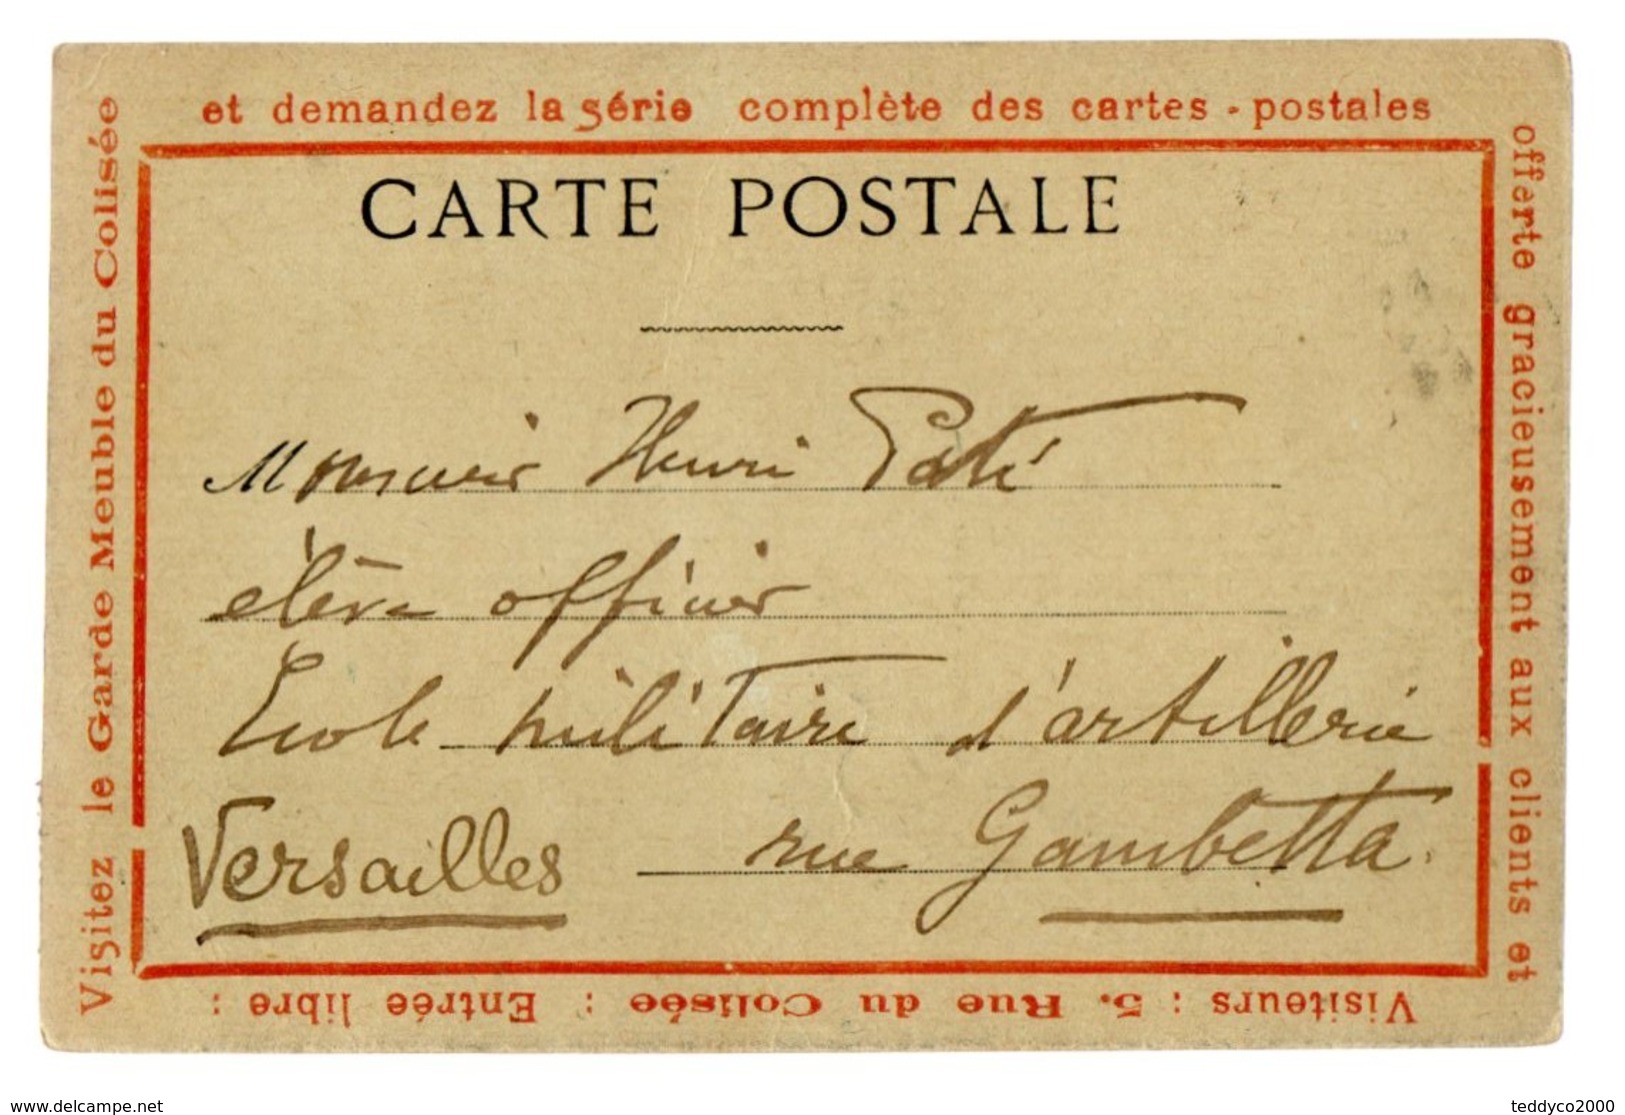 Visitez le Garde Meuble du Colisée
et demandez la série complète des cartes-postales
offerte gracieusement aux clients et
Visiteurs : 5. Rue du Colisée : Entrée libre :
CARTE POSTALE
Monsieur Henri Paté
élève officier
Ecole militaire d'artillerie
Versailles rue Gambetta.
www.delcampe.net
teddyco2000